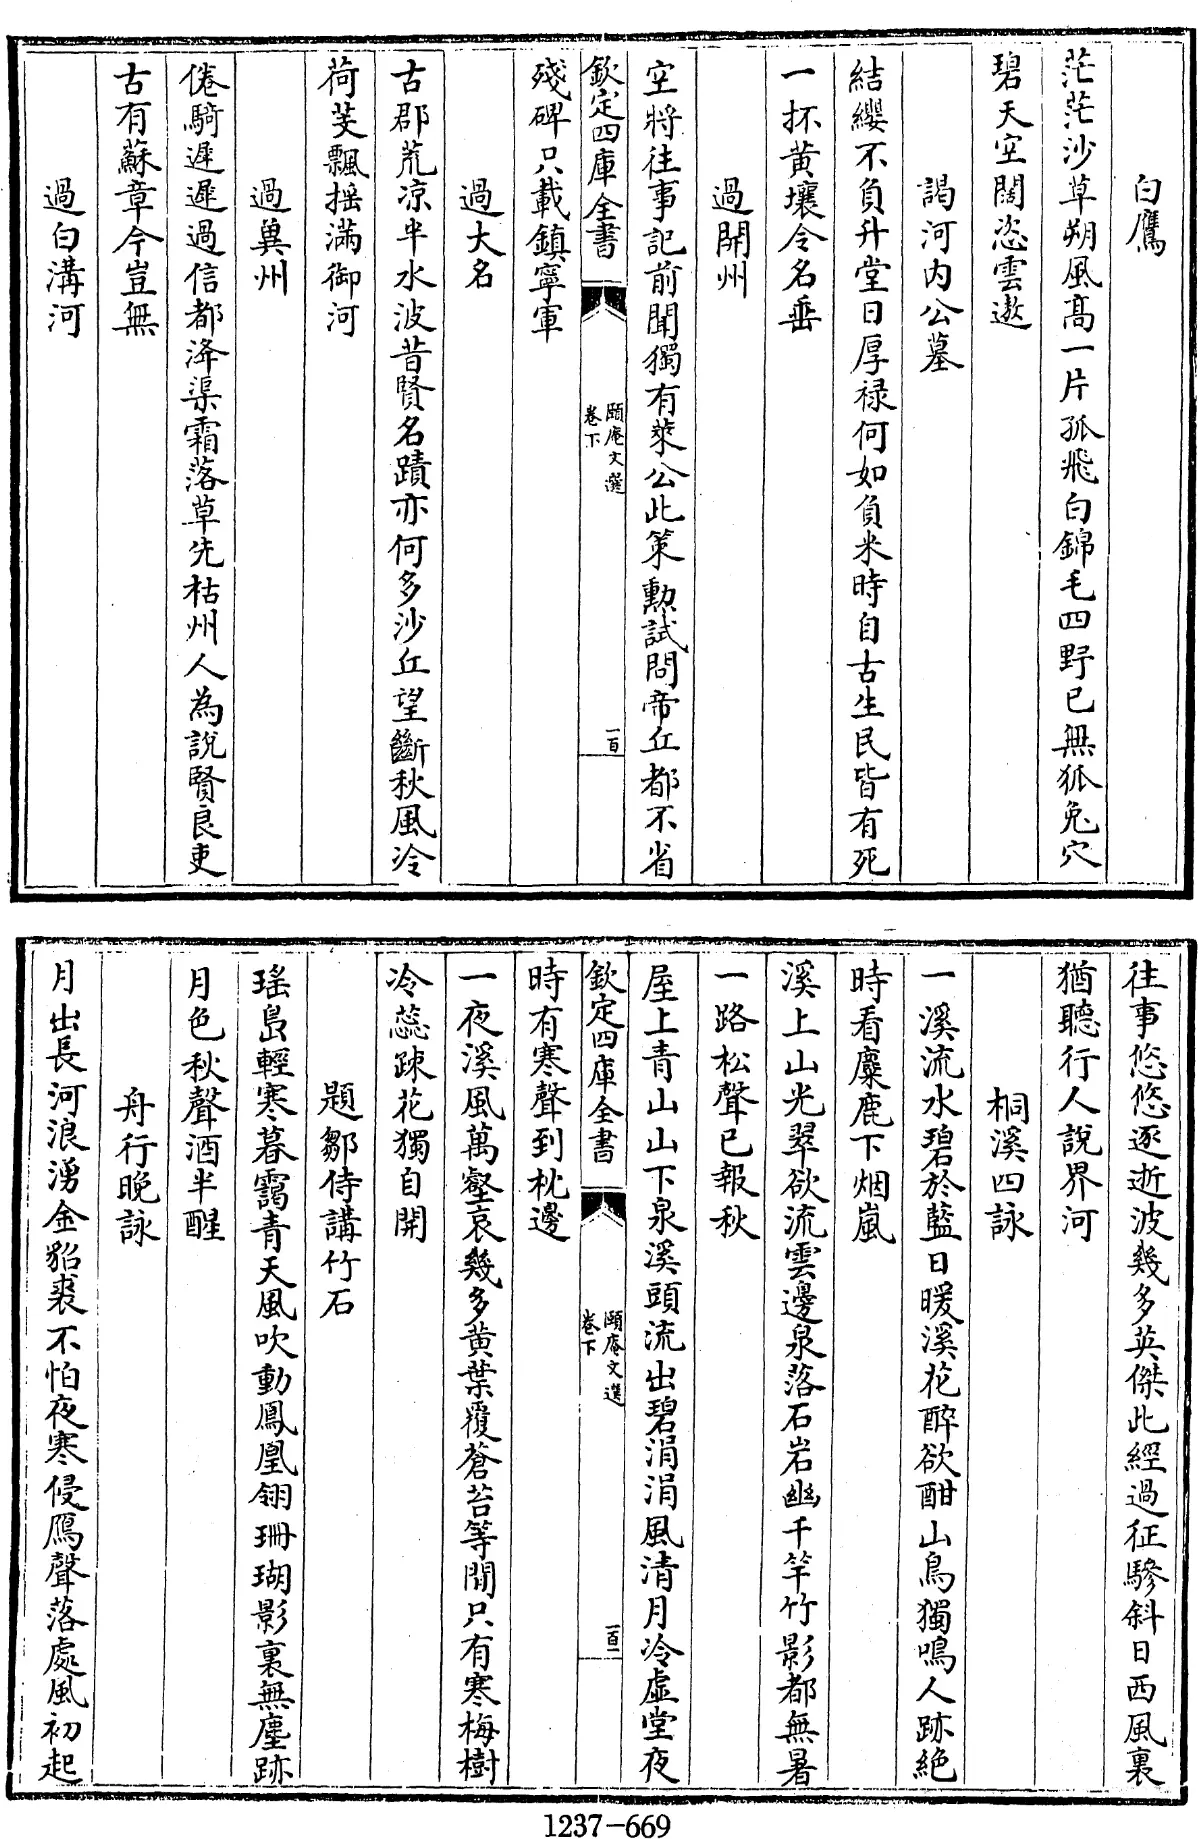 白鷹
茫茫沙草朔風高一片孤飛白錦毛四野已無狐兔穴
碧天空闊恣雲遨
謁河内公墓
結纓不負升堂日厚禄何如負米時自古生民皆有死
一抔黄壤令名垂
過開州
空將往事記前聞獨有萊公此策勲試問帝丘都不省
欽定四庫全書
頤庵文選
卷下
一百
殘碑只載鎮寧軍
過大名
古郡荒凉半水波昔賢名蹟亦何多沙丘望斷秋風冷
荷芰飄摇滿御河
過兾州
倦騎遲遲過信都洚渠霜落草先枯州人為說賢良吏
古有蘇章今豈無
過白溝河
往事悠悠逐逝波幾多英傑此經過征驂斜日西風裏
猶聽行人說界河
桐溪四詠
一溪流水碧於藍日暖溪花醉欲酣山鳥獨鳴人跡絶
時看麋鹿下烟嵐
溪上山光翠欲流雲邊泉落石岩幽千竿竹影都無暑
一路松聲已報秋
屋上青山山下泉溪頭流出碧涓涓風清月冷虚堂夜
欽定四庫全書
頤庵文選
卷下
一百一
時有寒聲到枕邊
一夜溪風萬壑哀幾多黄葉覆蒼苔等閒只有寒梅樹
冷蕊疎花獨自開
題鄒侍講竹石
瑤島輕寒暮靄青天風吹動鳳凰翎珊瑚影裏無塵跡
月色秋聲酒半醒
舟行晚詠
月出長河浪湧金貂裘不怕夜寒侵鴈聲落處風初起
1237-669